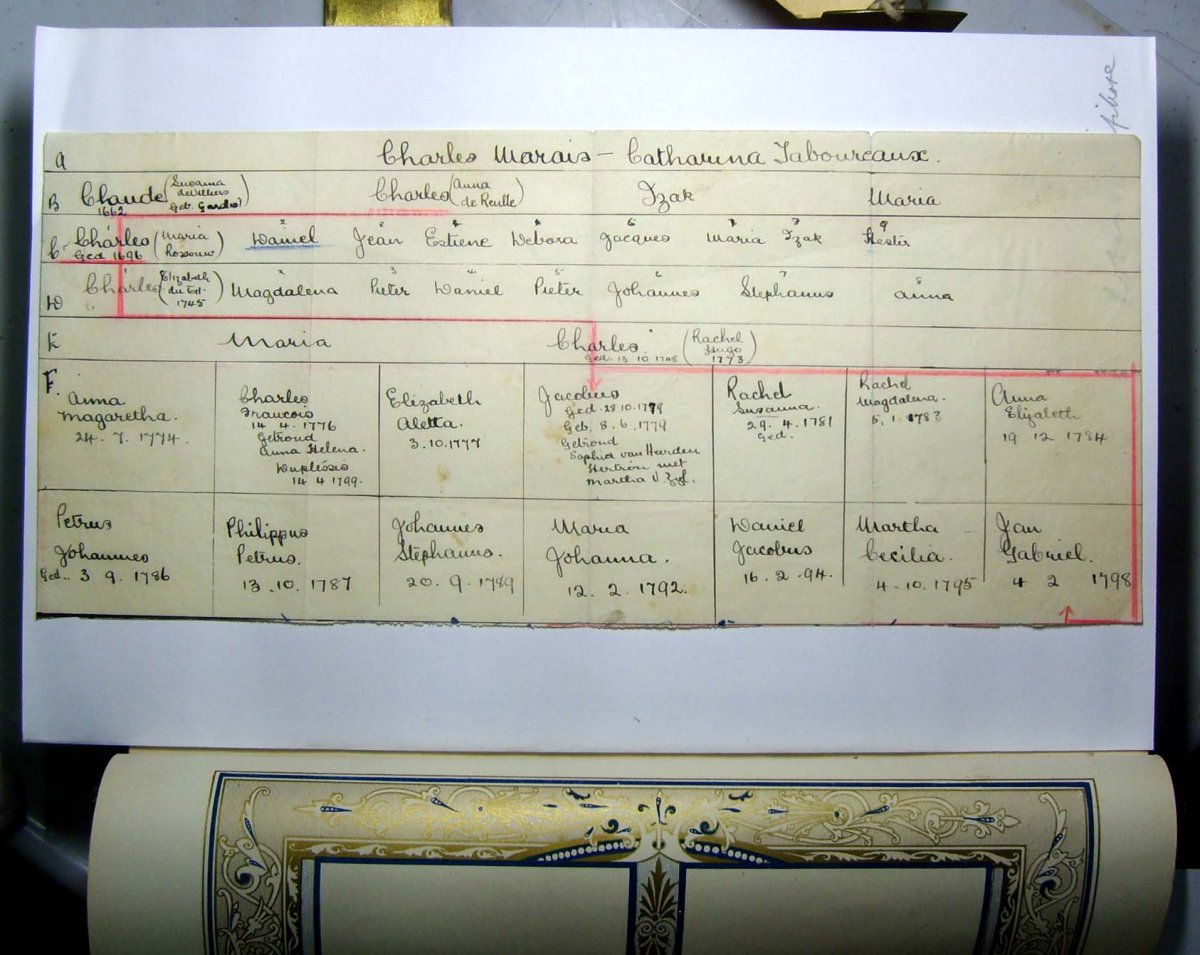 A Charles Marais - Catharina Taboureaux.
B Claude (Susanna de Villiers Geb. Gardio) Charles (Anna de Reulle) Izak Maria
1662
C Charles (Maria Rossouw) 2 Daniel 3 Jean 4 Estiene 5 Debora 6 Jacques 7 Maria 8 Izak 9 Hester
Ged 1696
D Charles (Elizabeth du Toit 1745) 2 Magdalena 3 Pieter 4 Daniel 5 Pieter 6 Johannes 7 Stephanus 8 Anna
E Maria Charles (Rachel Hugo 1773)
Ged. 13 10 1748
F.
Anna
Magaretha.
24. 7. 1774.
Charles
Francois
14 4. 1776
Getroud
Anna Helena.
Duplessis
14 4 1799.
Elizabeth
Aletta.
3.10.1777
Jacobus
Ged. 28.10.1779
Geb. 8. 6. 1779
Getroud
Sophia van Heerden
Hertroú met
Martha v. Zyl.
Rachel
Susanna.
29. 4. 1781
Ged.
Rachel
Magdalena.
5. 1. 1783
Anna
Elizabeth
19 12 1784
Petrus
Johannes
Ged.. 3 9. 1786
Philippus
Petrus.
13. 10. 1787
Johannes
Stephanus.
20. 9. 1789
Maria
Johanna.
12. 2. 1792.
Daniel
Jacobus
16. 2 .94.
Martha
Cecilia.
4. 10. 1795
Jan
Gabriel.
4 2 1798